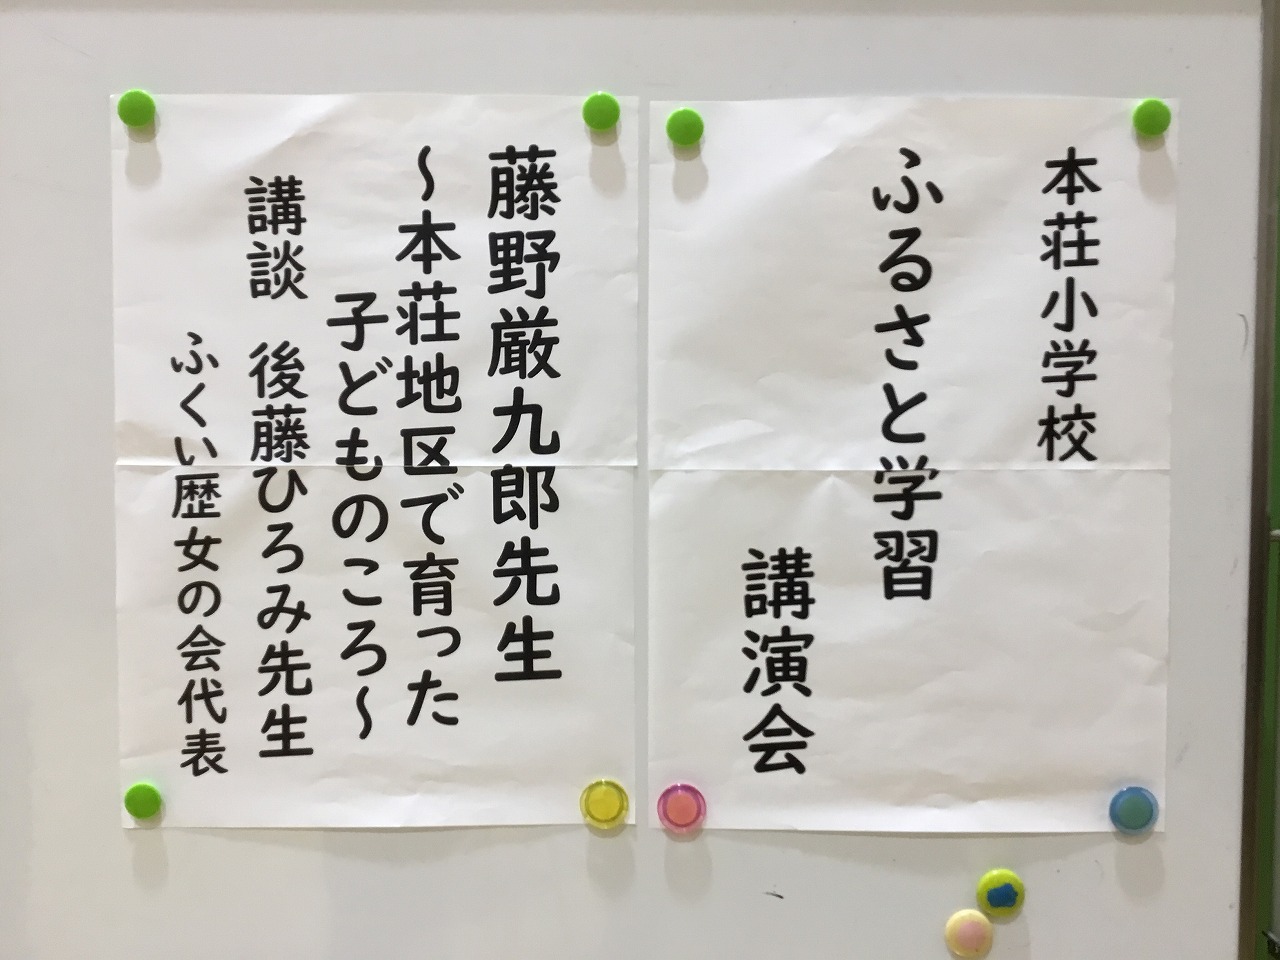 本荘小学校
ふるさと学習
講演会
藤野厳九郎先生
～本荘地区で育った
子どものころ～
講談　後藤ひろみ先生
ふくい歴女の会代表